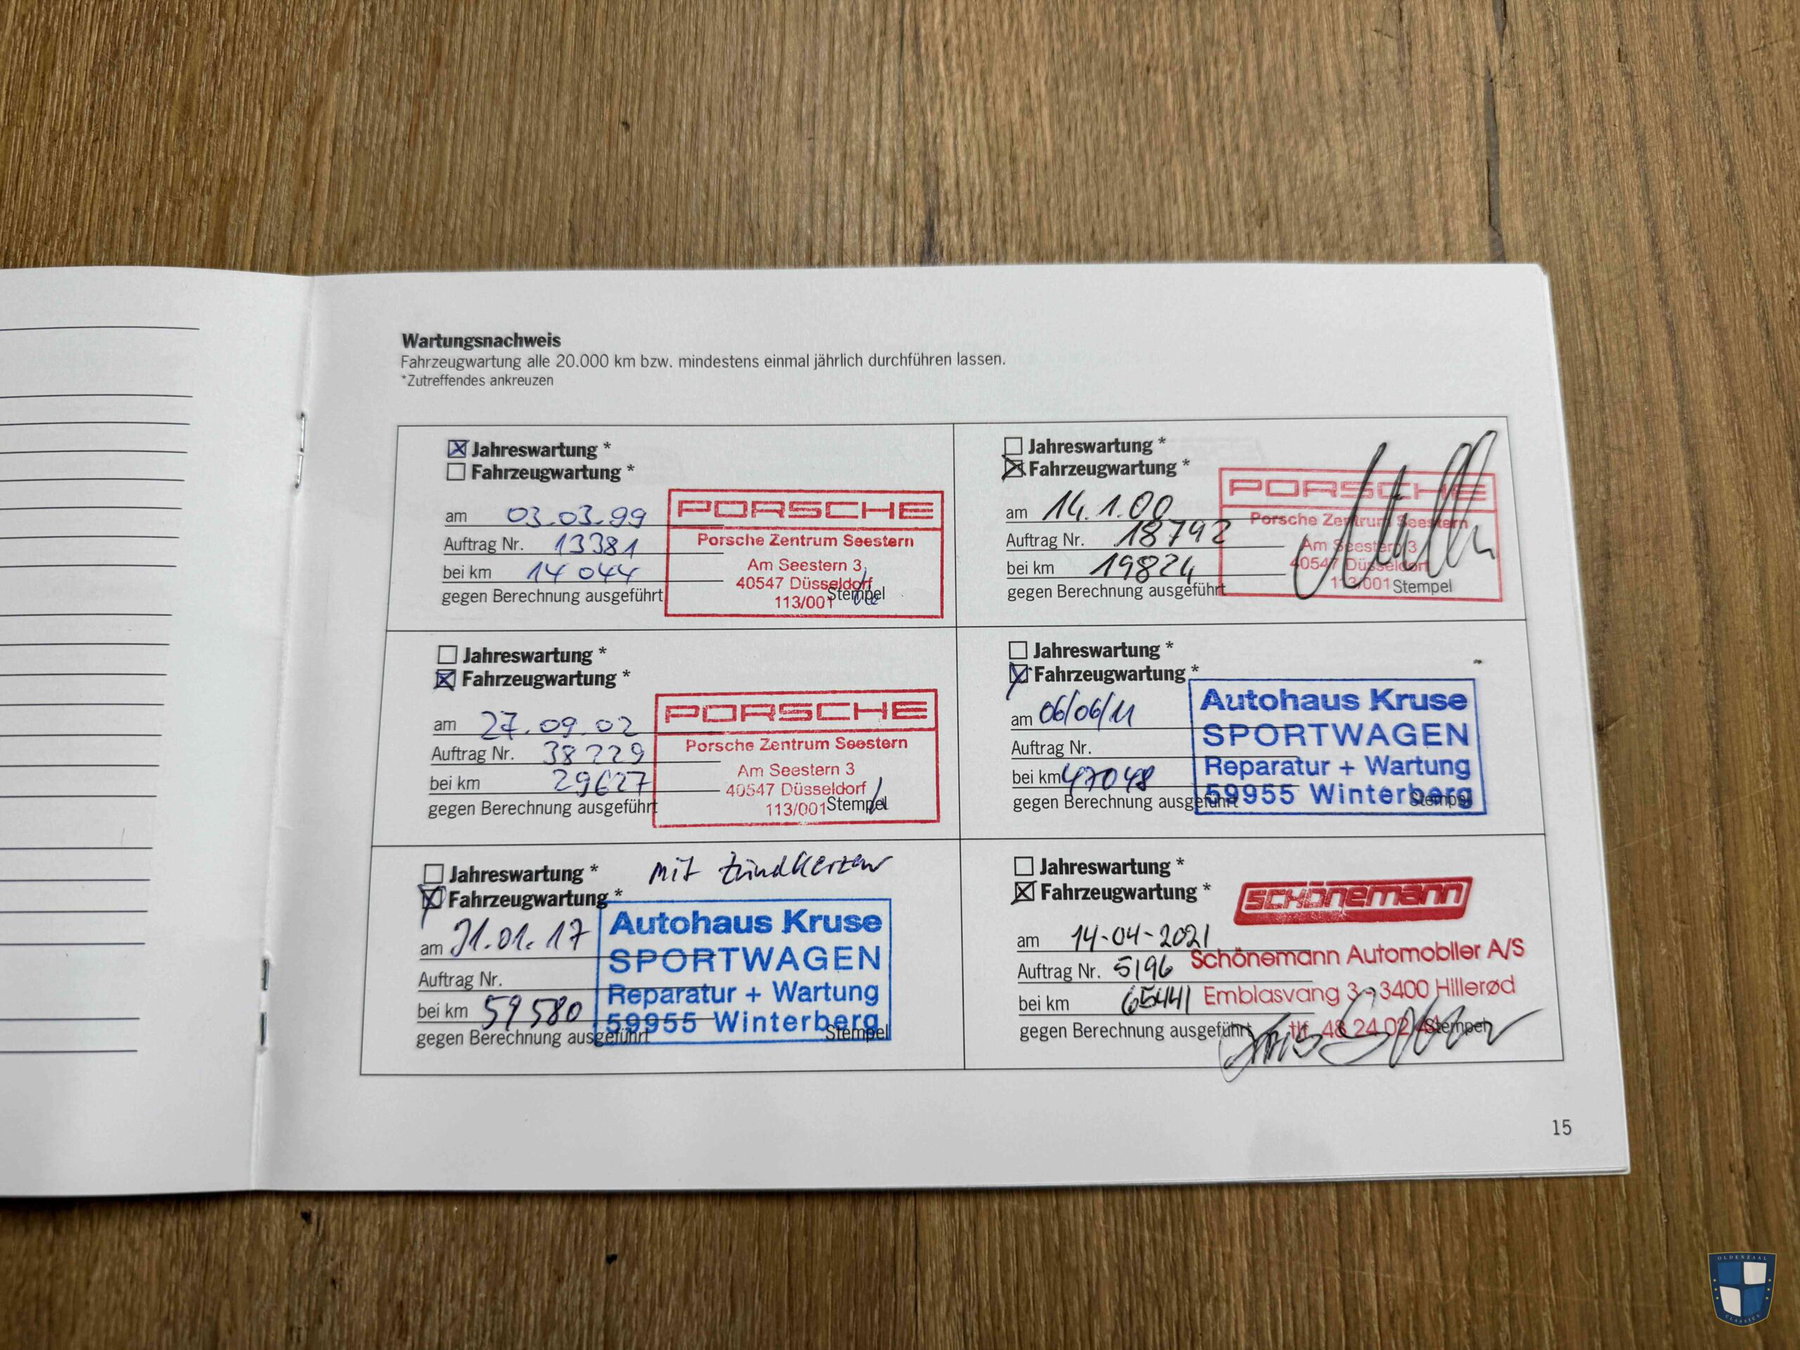 Wartungsnachweis
Fahrzeugwartung alle 20.000 km bzw. mindestens einmal jährlich durchführen lassen.
*Zutreffendes ankreuzen
Jahreswartung *
Fahrzeugwartung *
am 03.03.99
Auftrag Nr. 13381
bei km 14044
gegen Berechnung ausgeführt
PORSCHE
Porsche Zentrum Seestern
Am Seestern 3
40547 Düsseldorf
113/001
Stempel
Jahreswartung *
Fahrzeugwartung *
am 14.1.00
Auftrag Nr. 18792
bei km 19824
gegen Berechnung ausgeführt
PORSCHE
Porsche Zentrum Seestern
Am Seestern 3
40547 Düsseldorf
113/001
Stempel
Jahreswartung *
Fahrzeugwartung *
am 27.09.02
Auftrag Nr. 38229
bei km 29627
gegen Berechnung ausgeführt
PORSCHE
Porsche Zentrum Seestern
Am Seestern 3
40547 Düsseldorf
113/001
Stempel
Jahreswartung *
Fahrzeugwartung *
am 06/06/11
Auftrag Nr.
bei km 47048
gegen Berechnung ausgeführt
Autohaus Kruse
SPORTWAGEN
Reparatur + Wartung
59955 Winterberg
Stempel
Jahreswartung *
mit Zündkerzen
Fahrzeugwartung *
am 31.01.17
Auftrag Nr.
bei km 59580
gegen Berechnung ausgeführt
Autohaus Kruse
SPORTWAGEN
Reparatur + Wartung
59955 Winterberg
Stempel
Jahreswartung *
Fahrzeugwartung *
am 14-04-2021
Auftrag Nr. 5196
bei km 65441
gegen Berechnung ausgeführt
SCHÖNEMANN
Schönemann Automobiler A/S
Emblasvang 3 - 3400 Hillerød
tlf. 48 24 02
Stempel
15
OLDENZAAL
CLASSICS